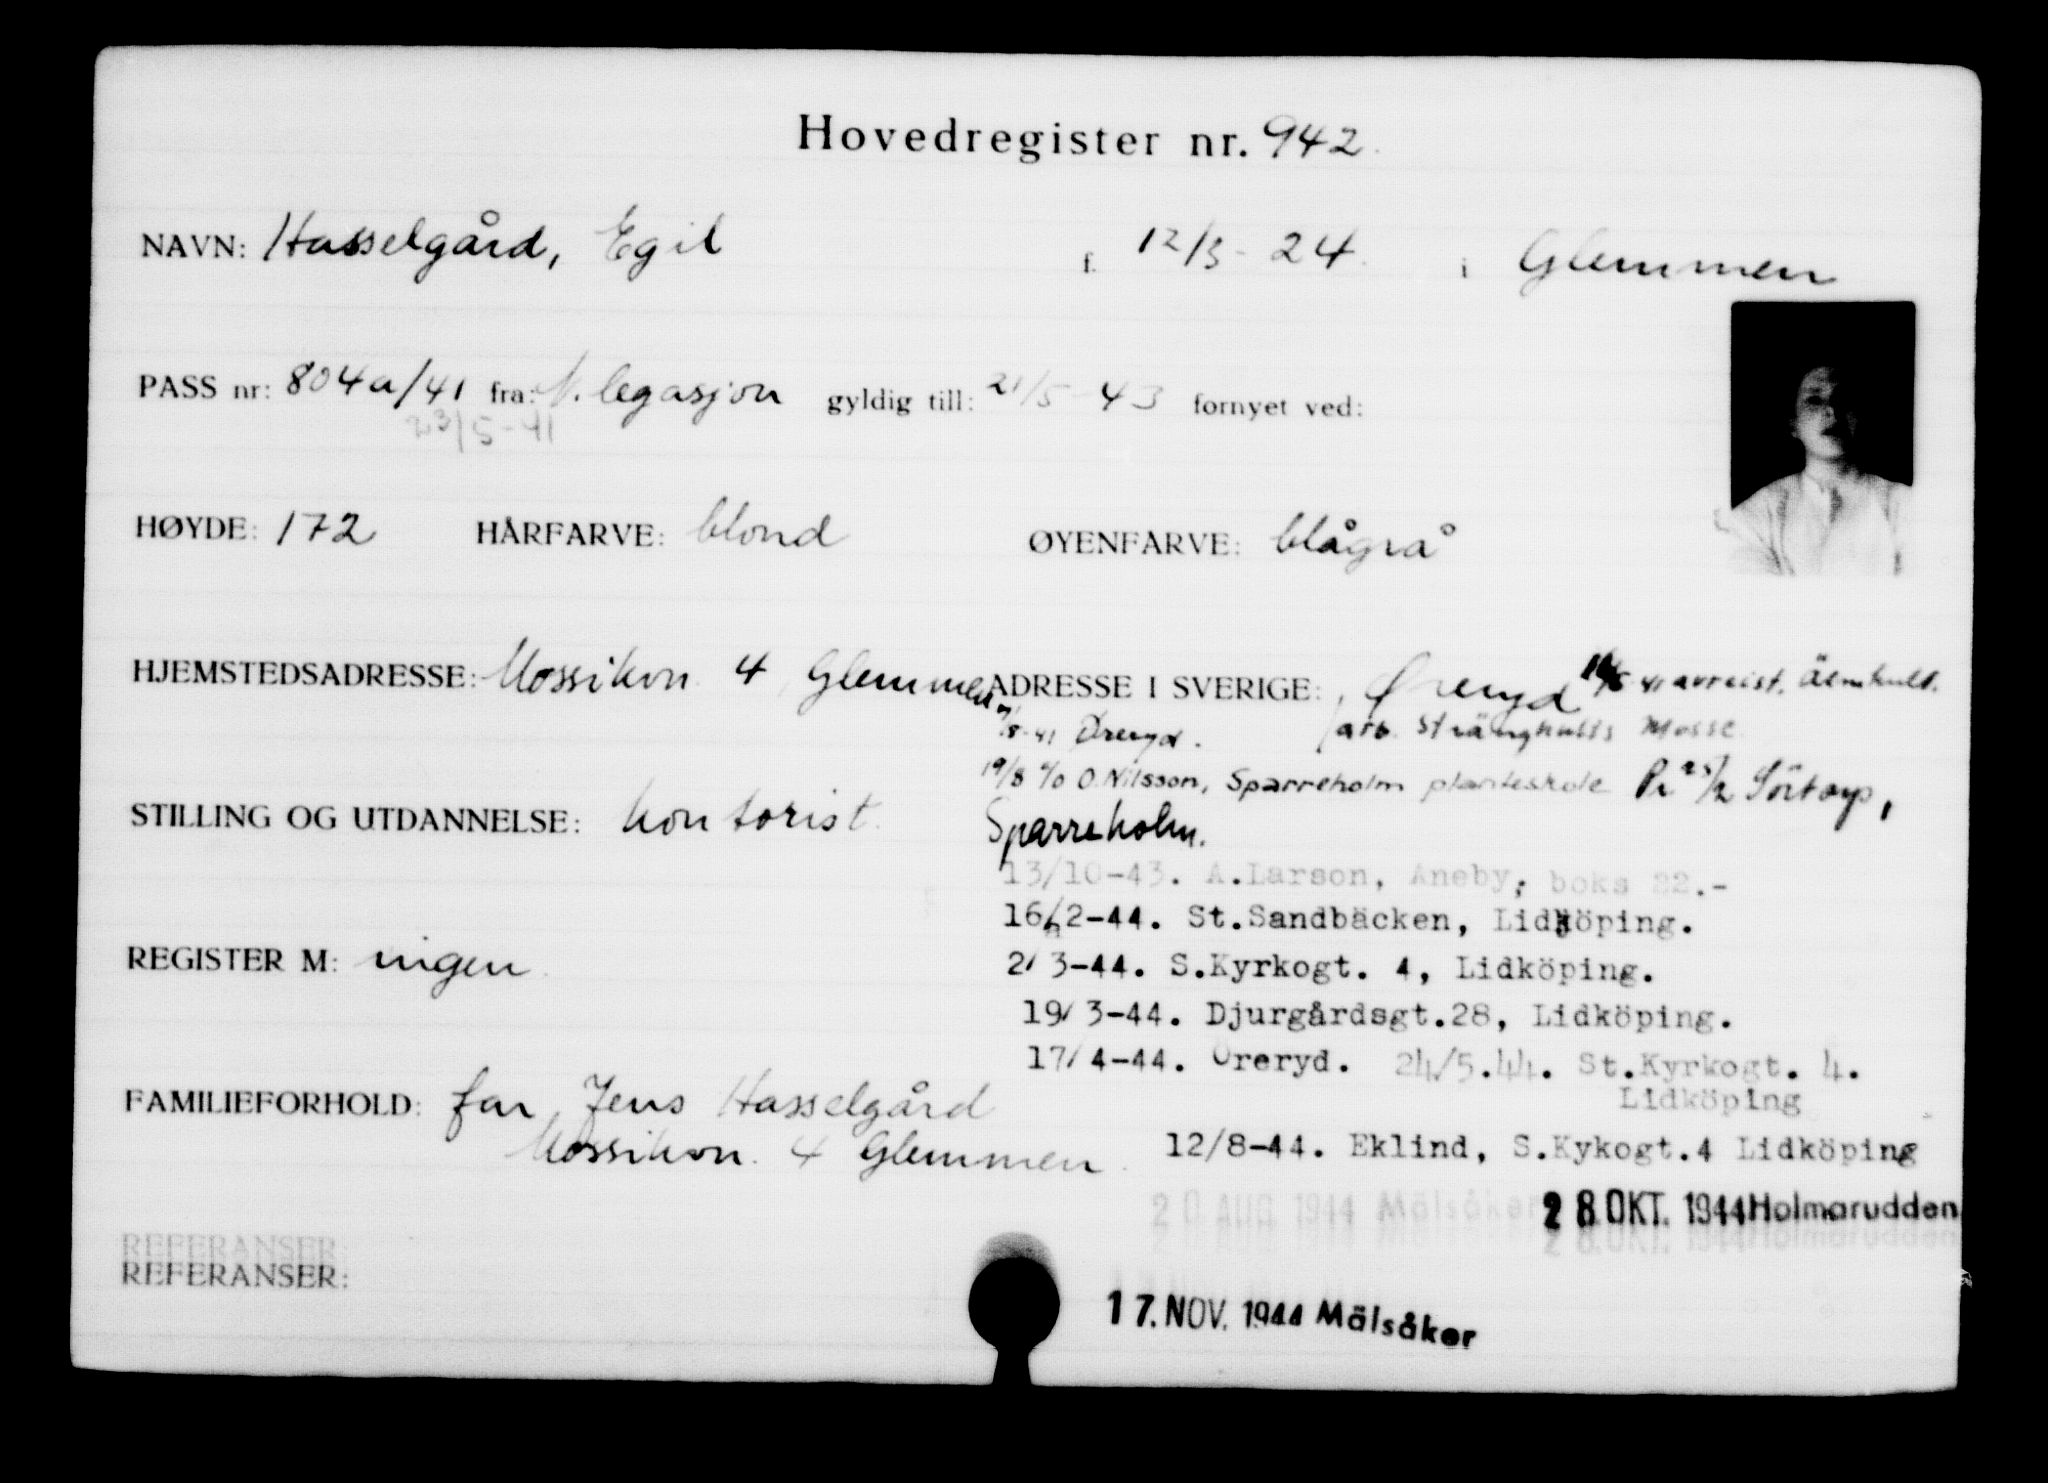 Hovedregister nr. 942.
NAVN: Hasselgård, Egil f. 12/3-24. i Glemmen
PASS nr: 804a/41 fra: N. legasjon gyldig till: 21/5 43 fornyet ved:
23/5-41
HØYDE: 172 HÅRFARVE: blond ØYENFARVE: blågrå
HJEMSTEDSADRESSE: Mossikvn. 4, Glemmen ADRESSE I SVERIGE: Øreryd 41 avreist. Älmhult.
8-41 Øreryd. arb. Stränghults Mosse
19/8 c/o O. Nilsson, Sparreholm planteskole Pr 25/2 Sörtorp,
STILLING OG UTDANNELSE: kontorist. Sparreholm.
13/10-43. A.Larson, Aneby, boks 22.-
16/2-44. St.Sandbäcken, Lidköping.
REGISTER M: ingen
2/3-44. S.Kyrkogt. 4, Lidköping.
19/3-44. Djurgårdsgt.28, Lidköping.
17/4-44. Öreryd. 24/5.44. St.Kyrkogt. 4.
Lidköping
FAMILIEFORHOLD: far, Jens Hasselgård
Mossikvn. 4 Glemmen.
12/8-44. Eklind, S.Kykogt.4 Lidköping
20 AUG. 1944 Mälsåker 28.OKT. 1944 Holmarudden
REFERANSER:
REFERANSER:
17.NOV. 1944 Mälsåker